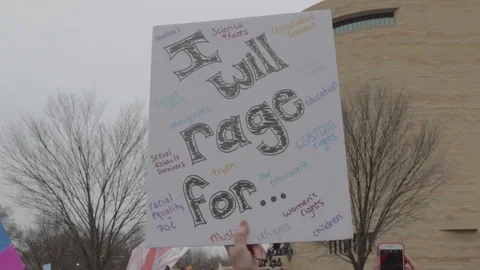 Science
& facts
reproductive
freedom
I
will
rage
for...
equal
pay
immigrants
education
LGBTQIA
rights
sexual
assault
survivors
truth
the environment
racial
equality
+
POC
women's
rights
Muslims
refugees
children